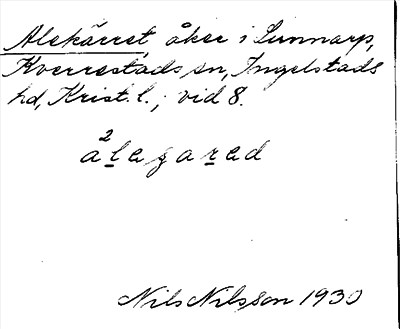 Alekärret, åker i Sunnarp,
Kverrestads sn, Ingelstads
hd, Krist. l.; vid 8.
a²lagarad
Nils Nilsson 1930